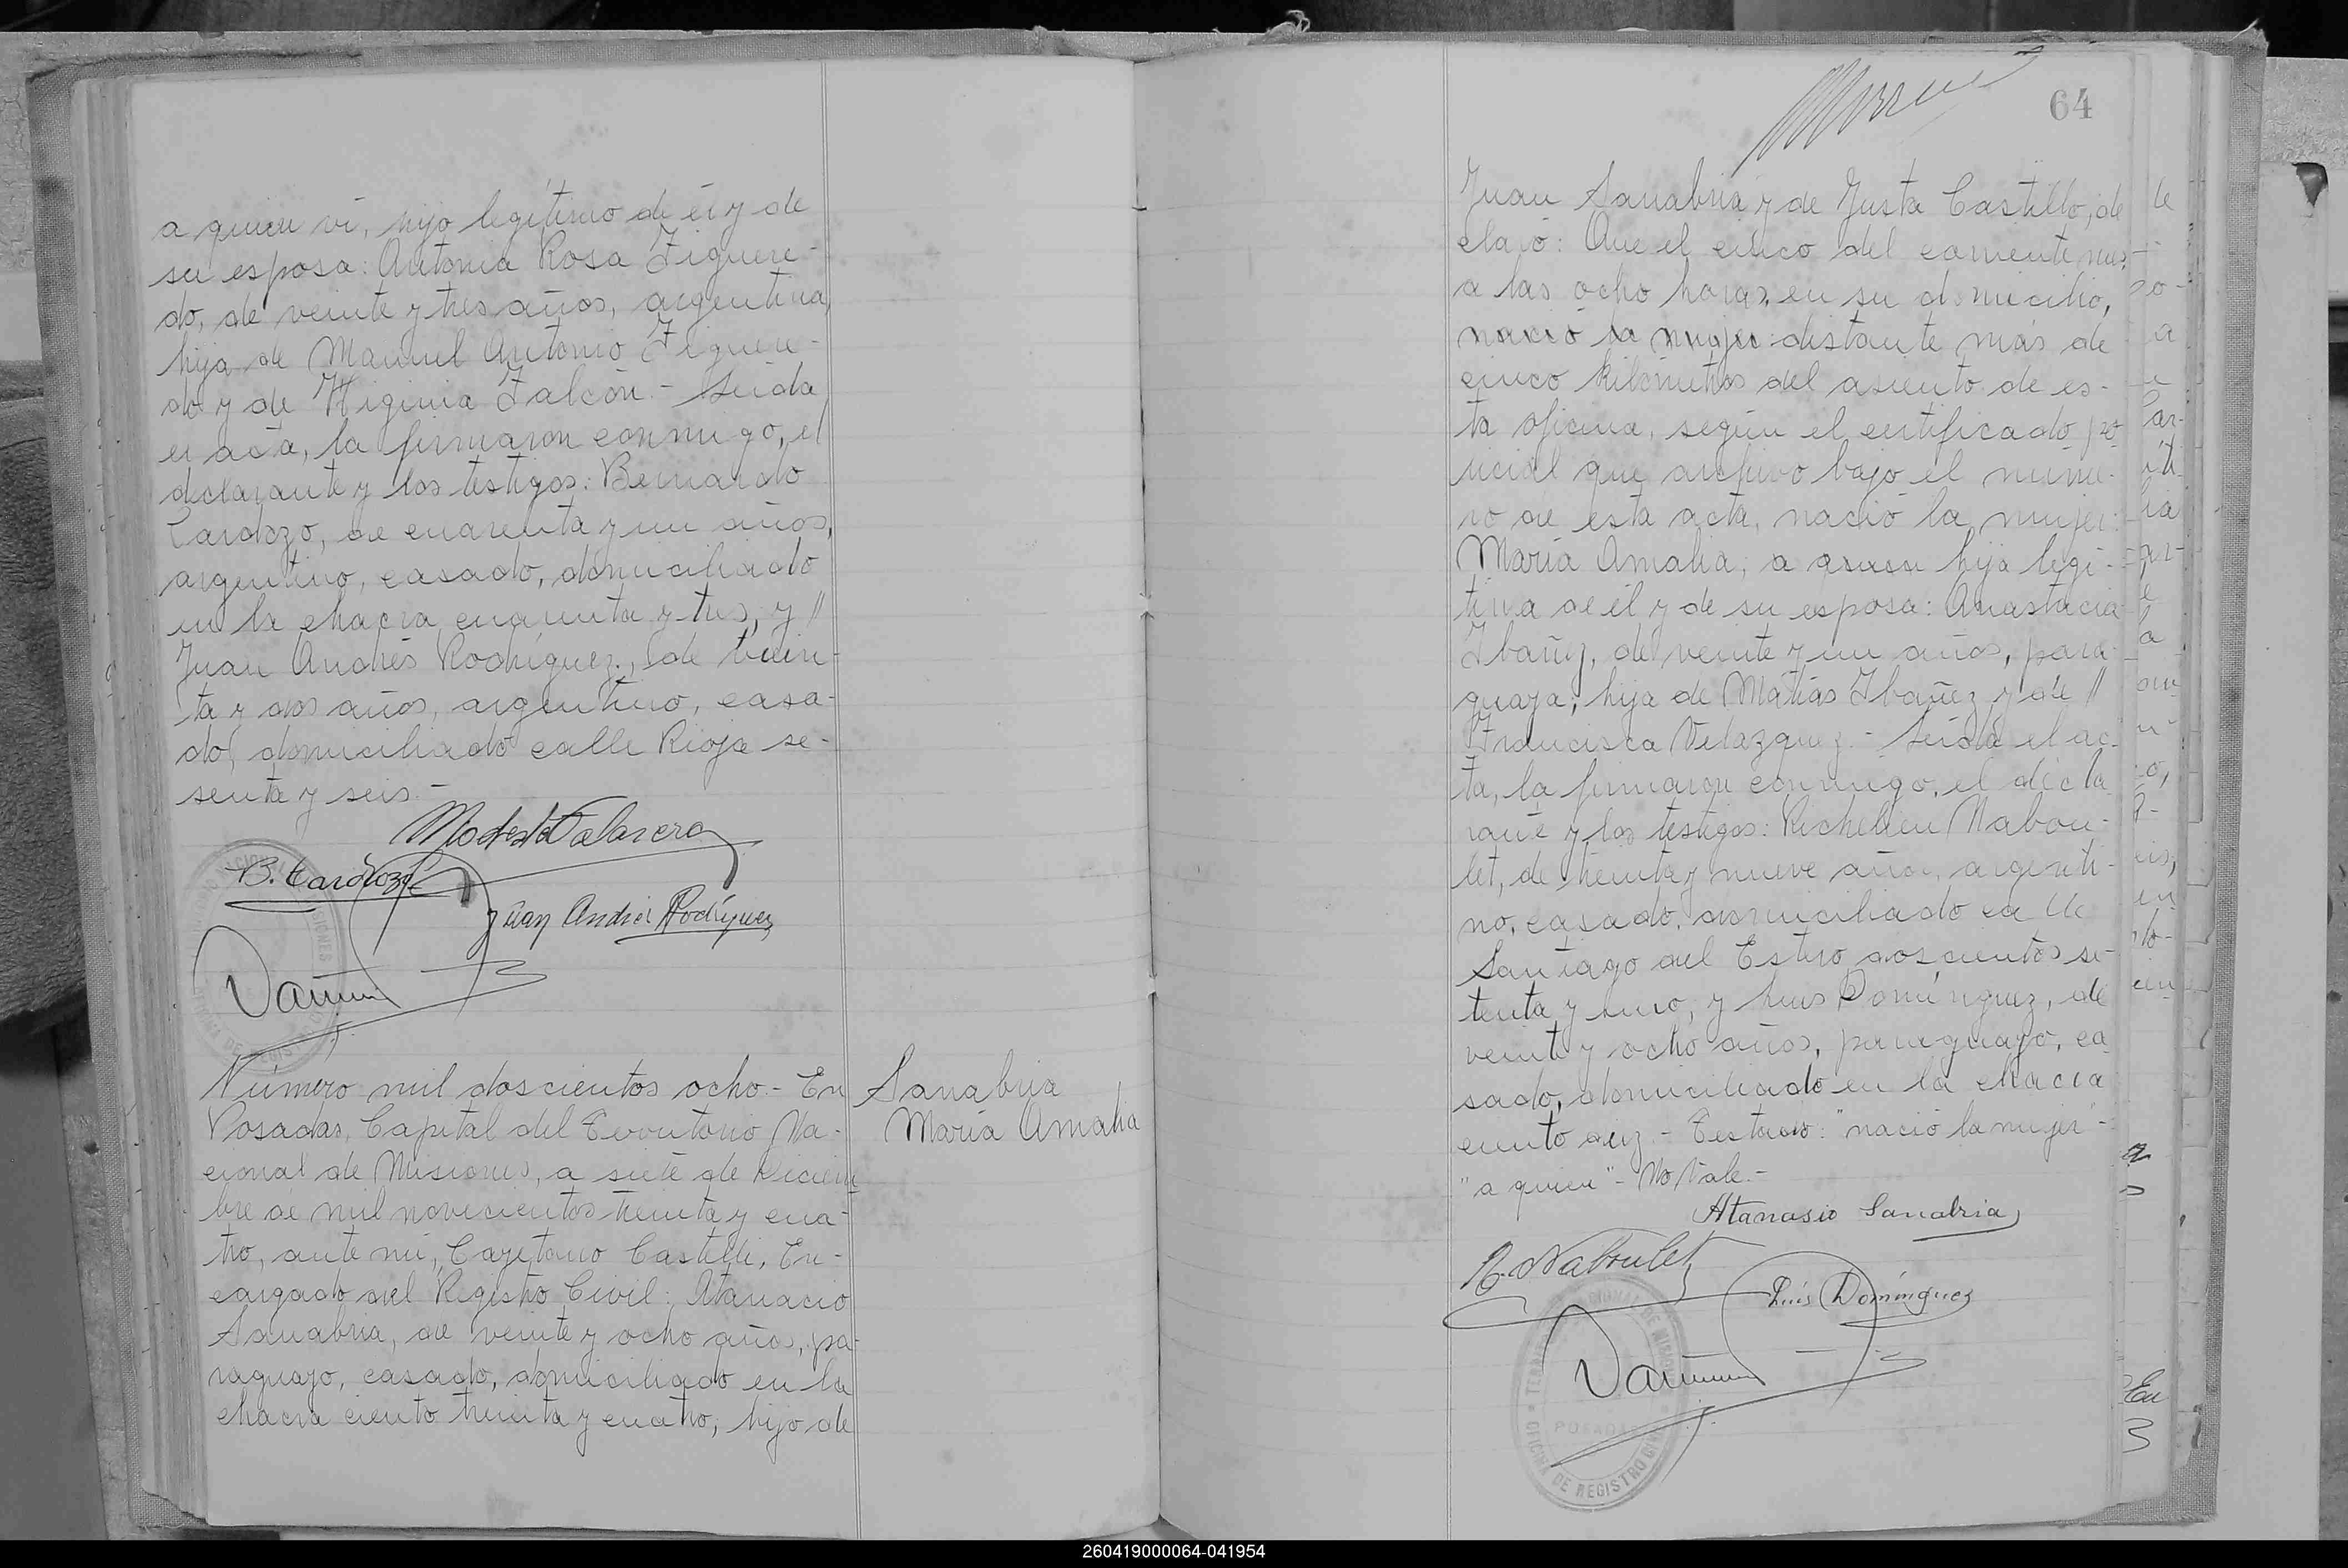 a quien vi, hijo legítimo de él y de
su esposa: Antonia Rosa Figuere-
do, de veinte y tres años, argentina,
hija de Manuel Antonio Figuere-
do y de Higinia Falcón.- Leída
el acta, la firmaron conmigo, el
declarante y los testigos: Bernardo
Cardozo, de cuarenta y un años,
argentino, casado, domiciliado
en la chacra cuarenta y tres, y //
Juan Andrés Rodríguez, de trein-
ta y dos años, argentino, casa-
do, domiciliado calle Rioja se-
senta y seis.-
Modesto Talavera
B. Cardozo
Juan Andrés Rodríguez
Número mil doscientos ocho.- En
Posadas, Capital del Territorio Na-
cional de Misiones, a siete de Diciem
bre de mil novecientos treinta y cua-
tro, ante mí, Cayetano Castelli, En-
cargado del Registro Civil: Atanacio
Sanabria, de veinte y ocho años, pa-
raguayo, casado, domiciliado en la
chacra ciento treinta y cuatro, hijo de
Sanabria
María Amalia
64
Juan Sanabria y de Justa Castillo, de
claró: Que el cinco del corriente mes,
a las ocho horas, en su domicilio,
nació la mujer distante más de
cinco kilómetros del asiento de es-
ta oficina, según el certificado po
licial que archivo bajo el núme-
ro de esta acta, nació la mujer:
María Amalia, a quien hija legí-
tima de él y de su esposa: Anastacia
Ibañez, de veinte y un años, para-
guaya, hija de Matías Ibañez y de //
Francisca Velazquez.- Leída el ac-
ta, la firmaron conmigo, el decla
rante y los testigos: Richelieu Nabou-
let, de treinta y nueve años, argenti-
no, casado, domiciliado calle
Santiago del Estero doscientos se-
tenta y uno, y Luis Domínguez, de
veinte y ocho años, paraguayo, ca
sado, domiciliado en la chacra
ciento diez.- Testado: "nació la mujer"-
"a quien"- No Vale.-
Atanasio Sanabria
R. Naboulet
Luis Domínguez
POSADAS
OFICINA DE REGISTRO CIVIL
En
260419000064-041954